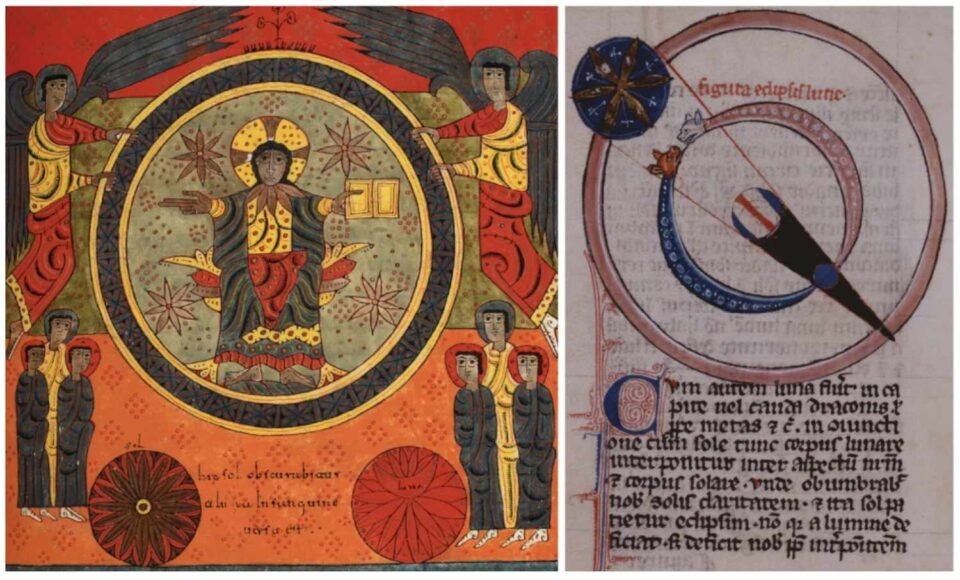 sol
hic sol obscurabitur
luna in sanguine
versa est
luna
figura eclipsis lune
Cum autem luna fiũt in ca
pite uel cauda draconis ł
ppe metas ⁊ c̃. in oiuncti
one cum sole tunc corpus lunare
interponitur inter aspectũ nr̃m
⁊ corpus solare. vnde obumbrab̾
nob̾ solis claritatem. ⁊ ita sol pa
tietur eclipsim. nõ q̾ a lumine de
ficiat. s̃ deficit nob̾ pp̃ int̾põitõem